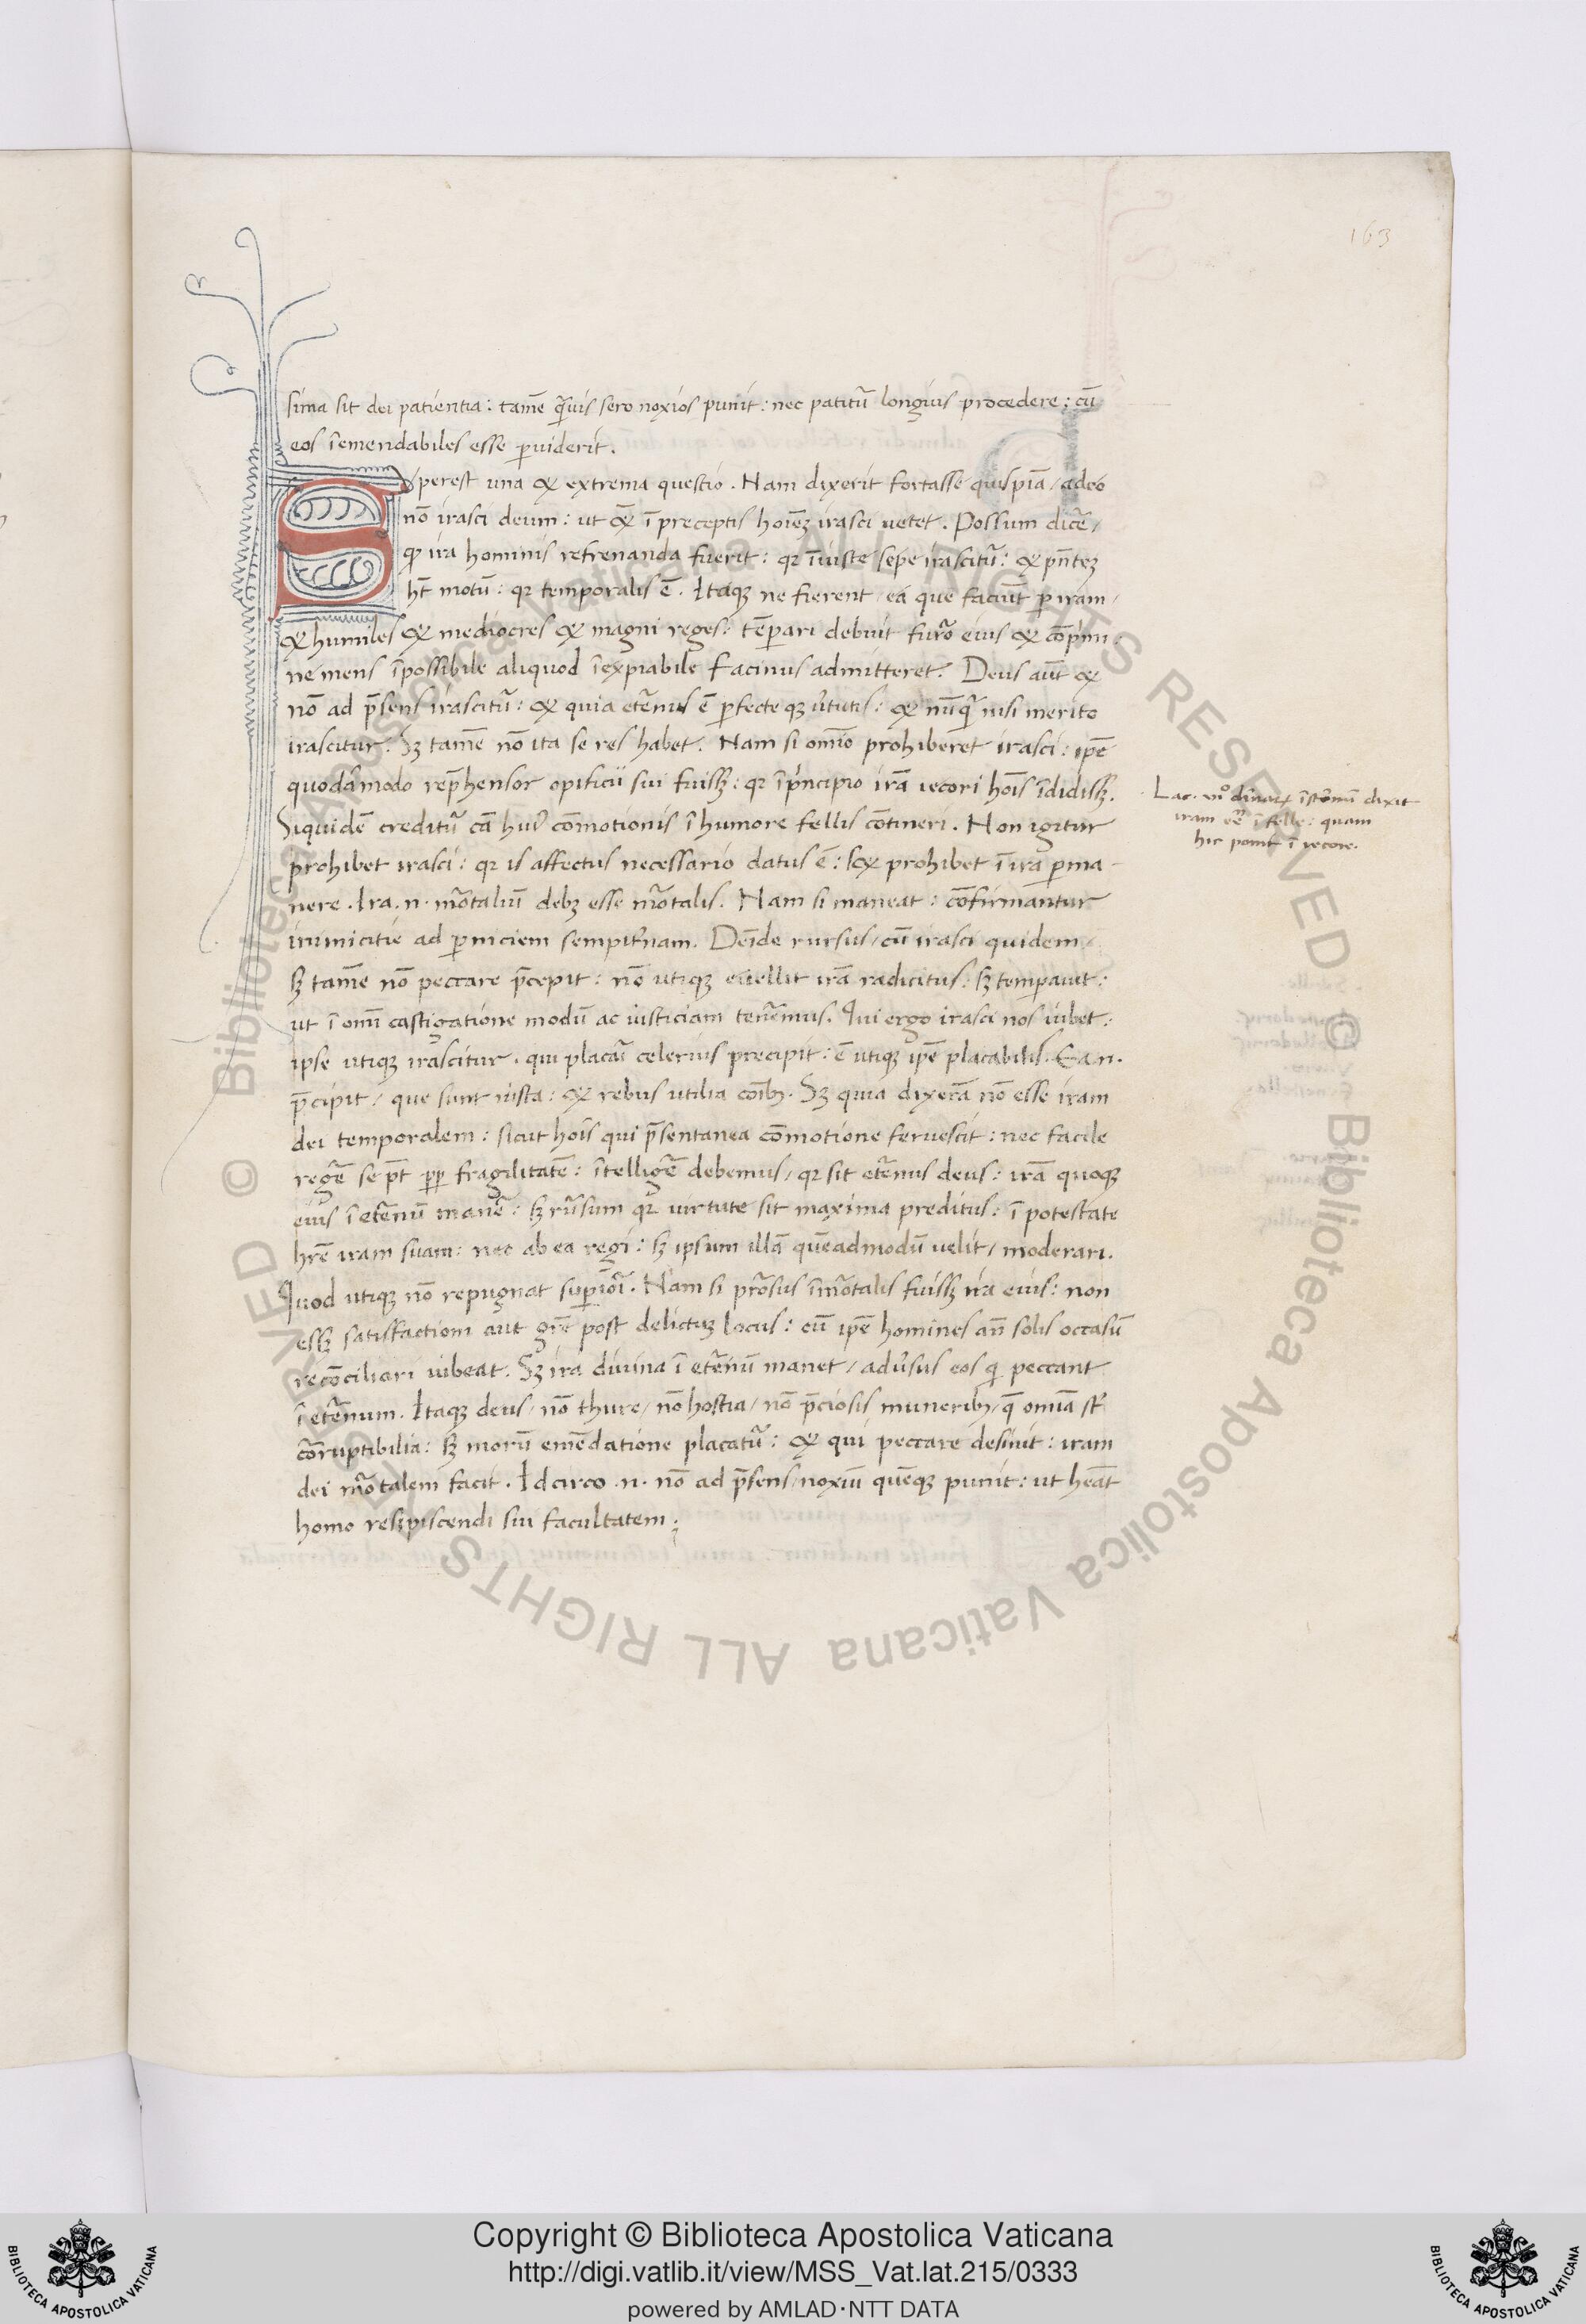 163
sima sit dei patientia: tamē q̄uis sero noxios punit: nec patitur̄ longius procedere: cū
eos īemendabiles esse puiderit.
Superest una & extrema questio. Nam dixerit fortasse quispiā/adeo
nō irasci deum: ut & ī preceptis hoiēz irasci uetet. Possum dicē/
q ira hominis refrenanda fuerit: qr īiuste sepe irascitū: & pn̄tez
ht̄ motū: qr temporalis ē. Itaqz ne fierent/ea que faciūt p iram/
& humiles & mediocres & magni reges: tēpari debuit furō eius & cōpmi:
ne mens īpossibile aliquod īexpiabile facinus admitteret. Deus aūt &
nō ad p̄sens irascitū: & quia etērnus ē pfecteqz uirtutis: & nūq̄ nisi merito
irascitur. Sz tamē nō ita se res habet. Nam si omīo prohiberet irasci: ipē
quodāmodo rep̄hensor opificii sui fuissz: qr īprincipio irā iecori hoīs īdidissz.
Siquidē creditū cā huiꝰ cōmotionis ī humore fellis cōtineri. Non igitur
prohibet irasci: qr is affectus necessario datus ē: sz prohibet ī ira pma-
nere. Ira .n. mōtaliū debz esse mōtalis. Nam si maneat: cōfirmantur
inimicitie ad pniciem sempitnam. Deīde rursus/cū irasci quidem
sz tamē nō peccare p̄cepit: nō utiqz euellit irā radicitus: sz tempauit:
ut ī omī castigatione modū ac iusticiam tenēmus. Qui ergo irasci nos iubet:
ipse utiqz irascitur. qui placāi celerius precipit: ē utiqz ipē placabilis. Ea .n.
p̄cipit/que sunt iusta: & rebus utilia cōibz. Sz quia dixerā nō esse iram
dei temporalem: sicut hoīs qui p̄sentanea cōmotione feruescit: nec facile
regē se p̄t pp fragilitatē: ītelligē debemus/qr sit etērnus deus: irā quoqz
eius ī etērnū manē: sz rūsum qr uirtute sit maxima preditus: ī potestate
hrē iram suam: nec ab ea regi: sz ipsum illā quēadmodū uelit/moderari.
Quod utiqz nō repugnat supiōi. Nam si prōsus īmōtalis fuissz ira eius: non
essz satisfactioni aut grē post delictuz locus: cū ipē homines an̄ solis occasū
recōciliari iubeat. Sz ira diuina ī etērnū manet/adūsus eos q peccant
ī etērnum. Itaqz deus/nō thure/nō hostia/nō p̄ciosis muneribz/q̄ omīa st̄
cōrruptibilia: sz morū emēdatione placatū: & qui peccare desinit: iram
dei mōtalem facit. Idcirco .n. nō ad p̄sens/noxiū quēqz punit: ut heāt
homo resipiscendi sui facultatem:
Lac. uiᵒ diuinaꝝ īstōnū dixit
iram eē ī felle: quam
hic ponit ī iecore.
© Biblioteca Apostolica Vaticana ALL RIGHTS RESERVED © Biblioteca Apostolica Vaticana ALL RIGHTS RESERVED
Copyright © Biblioteca Apostolica Vaticana
http://digi.vatlib.it/view/MSS_Vat.lat.215/0333
powered by AMLAD·NTT DATA
BIBLIOTECA APOSTOLICA VATICANA
BIBLIOTECA APOSTOLICA VATICANA